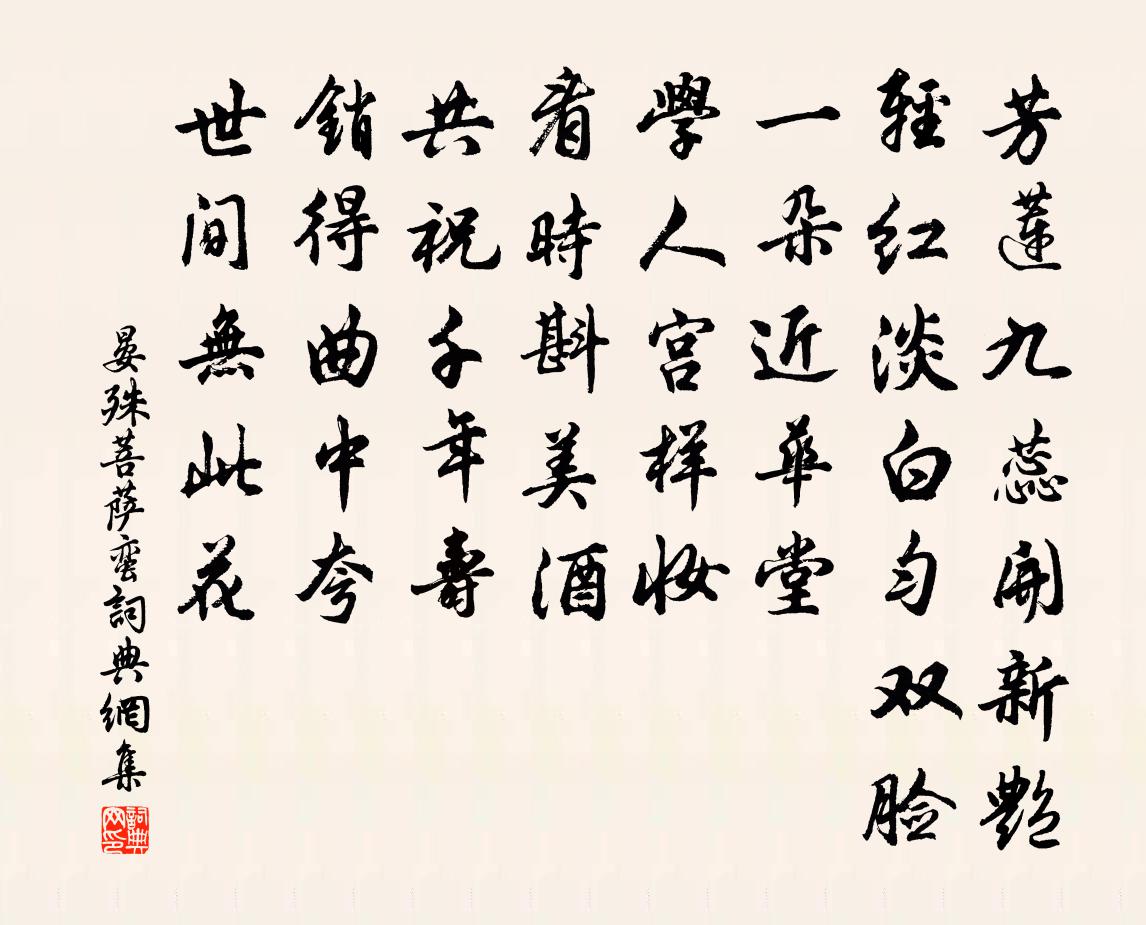 芳蓮九蕊開新艷
輕红淡白匀双臉
一朵近華堂
學人宫样妆
看時斟美酒
共祝千年壽
銷得曲中夸
世间無此花
晏殊菩萨蛮詞典網集
詞典网印